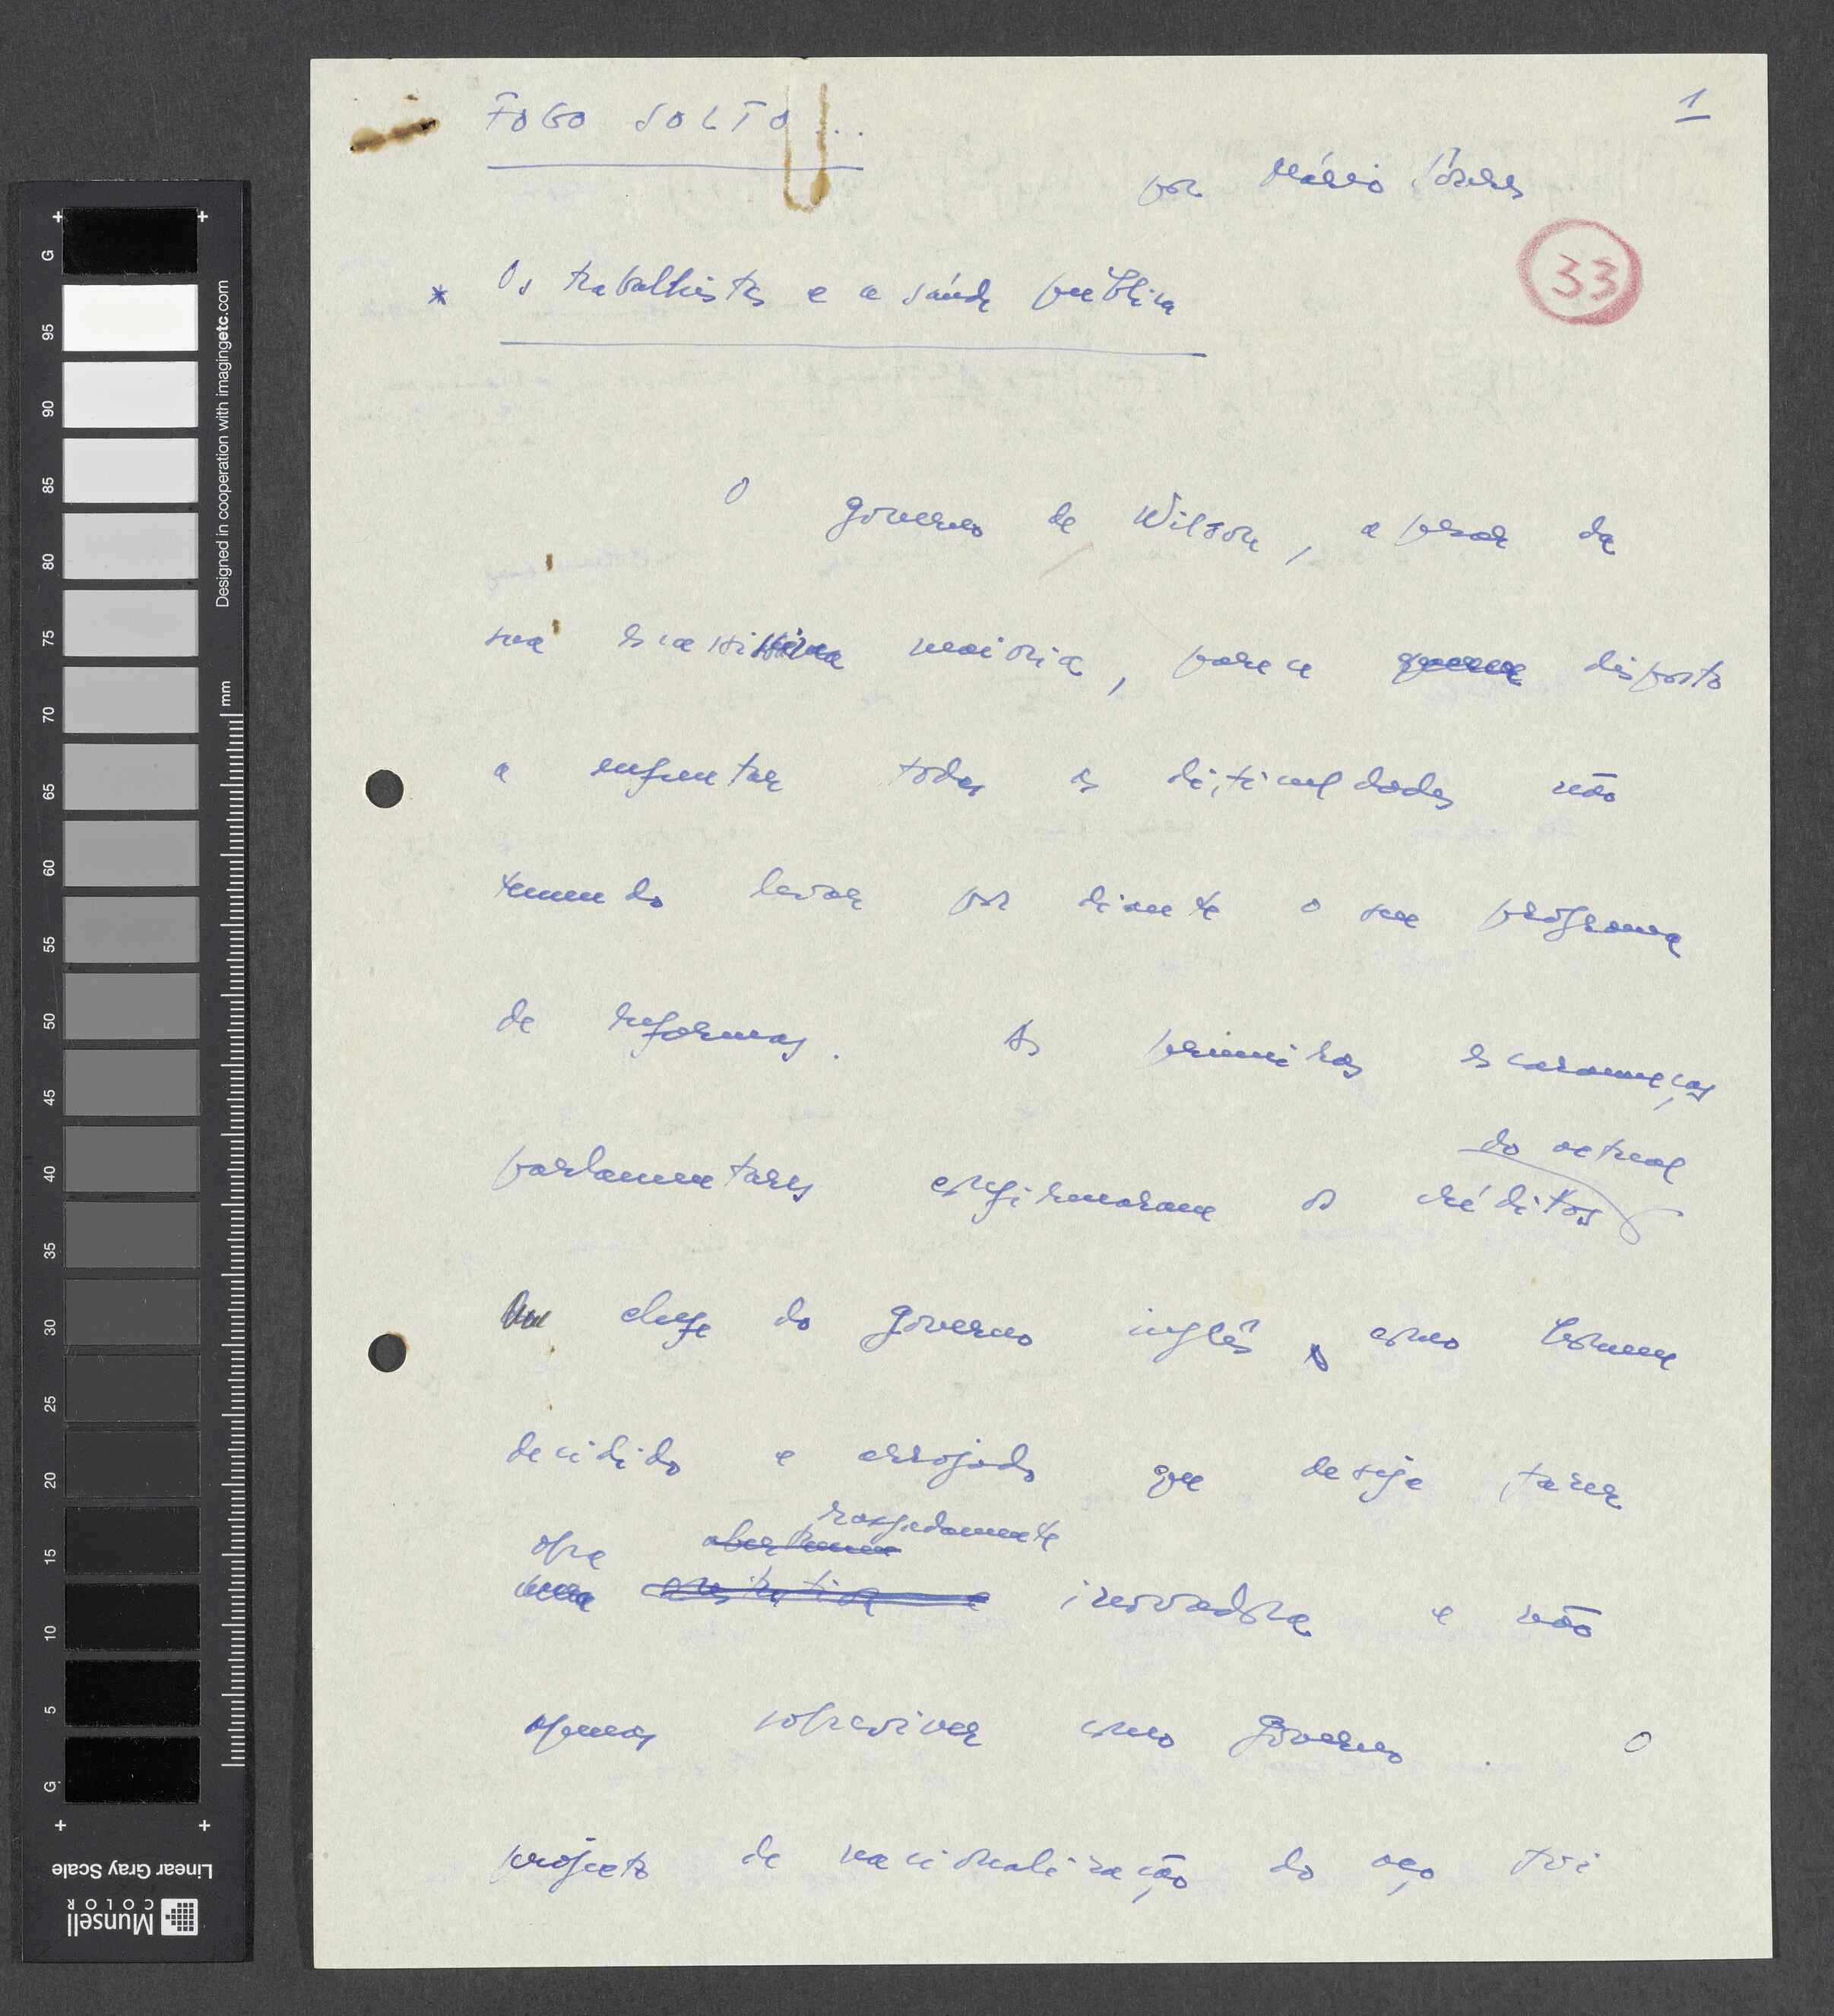 FOGO SOLTO...
1
por Mário Soares
33
* Os trabalhistas e a saúde pública
O governo de Wilson, apesar da
sua escassissima maioria, parece disposto
a enfrentar todas as dificuldades não
temendo levar por diante o seu programa
de reformas. As primeiras escaramuças
do actual
parlamentares confirmaram os créditos
chefe do governo inglês como homem
decidido e arrojado que deseja fazer
rasgadamente
obra abertamente
inovadora e não
apenas sobreviver como governo. O
projecto de nacionalização do aço foi
G
95
90
85
80
75
70
65
60
55
50
45
40
35
30
25
20
15
10
5
G
mm
Designed in cooperation with imagingetc.com
Linear Gray Scale
Munsell
COLOR